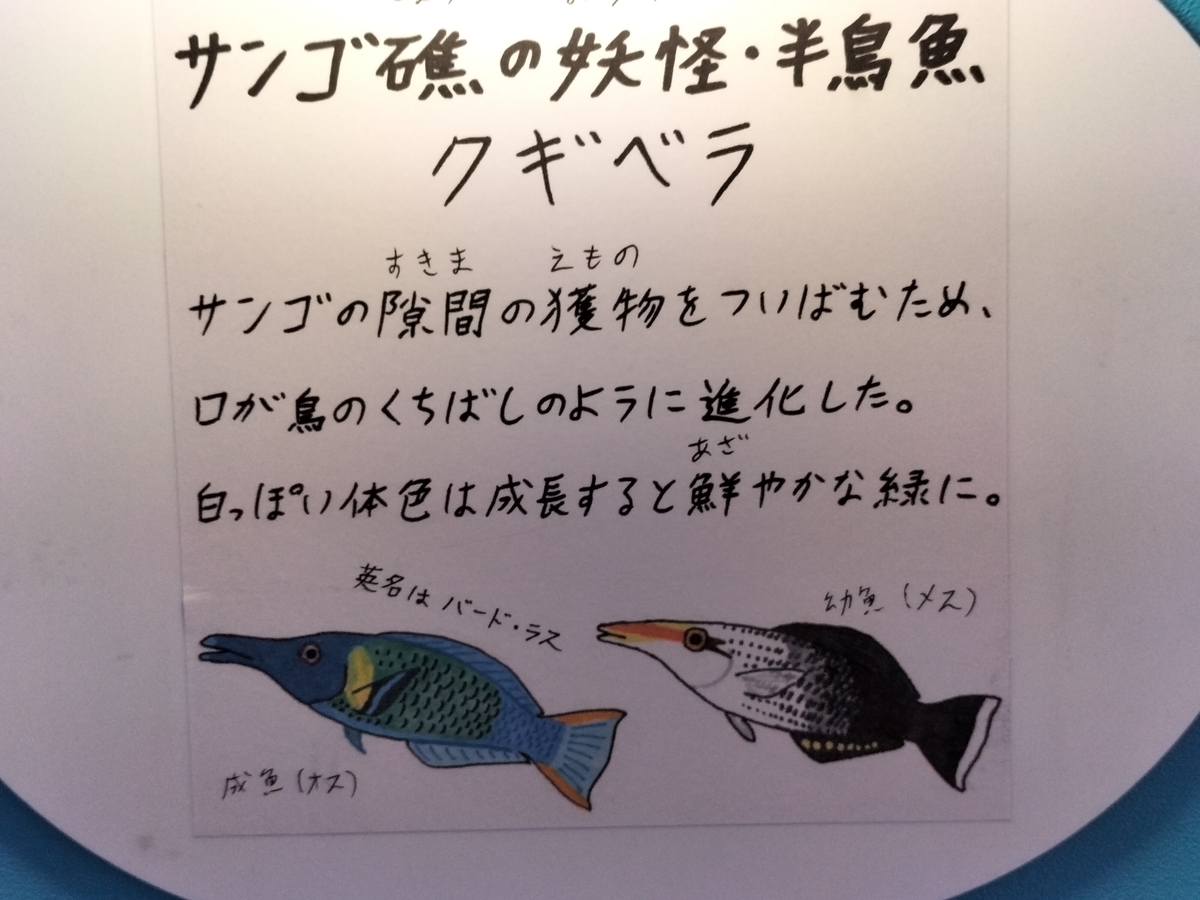 サンゴ礁の妖怪・半鳥魚
クギベラ
すきま えもの
サンゴの隙間の獲物をついばむため、
口が鳥のくちばしのように進化した。
あざ
白っぽい体色は成長すると鮮やかな緑に。
英名はバード・ラス
幼魚(メス)
成魚(オス)